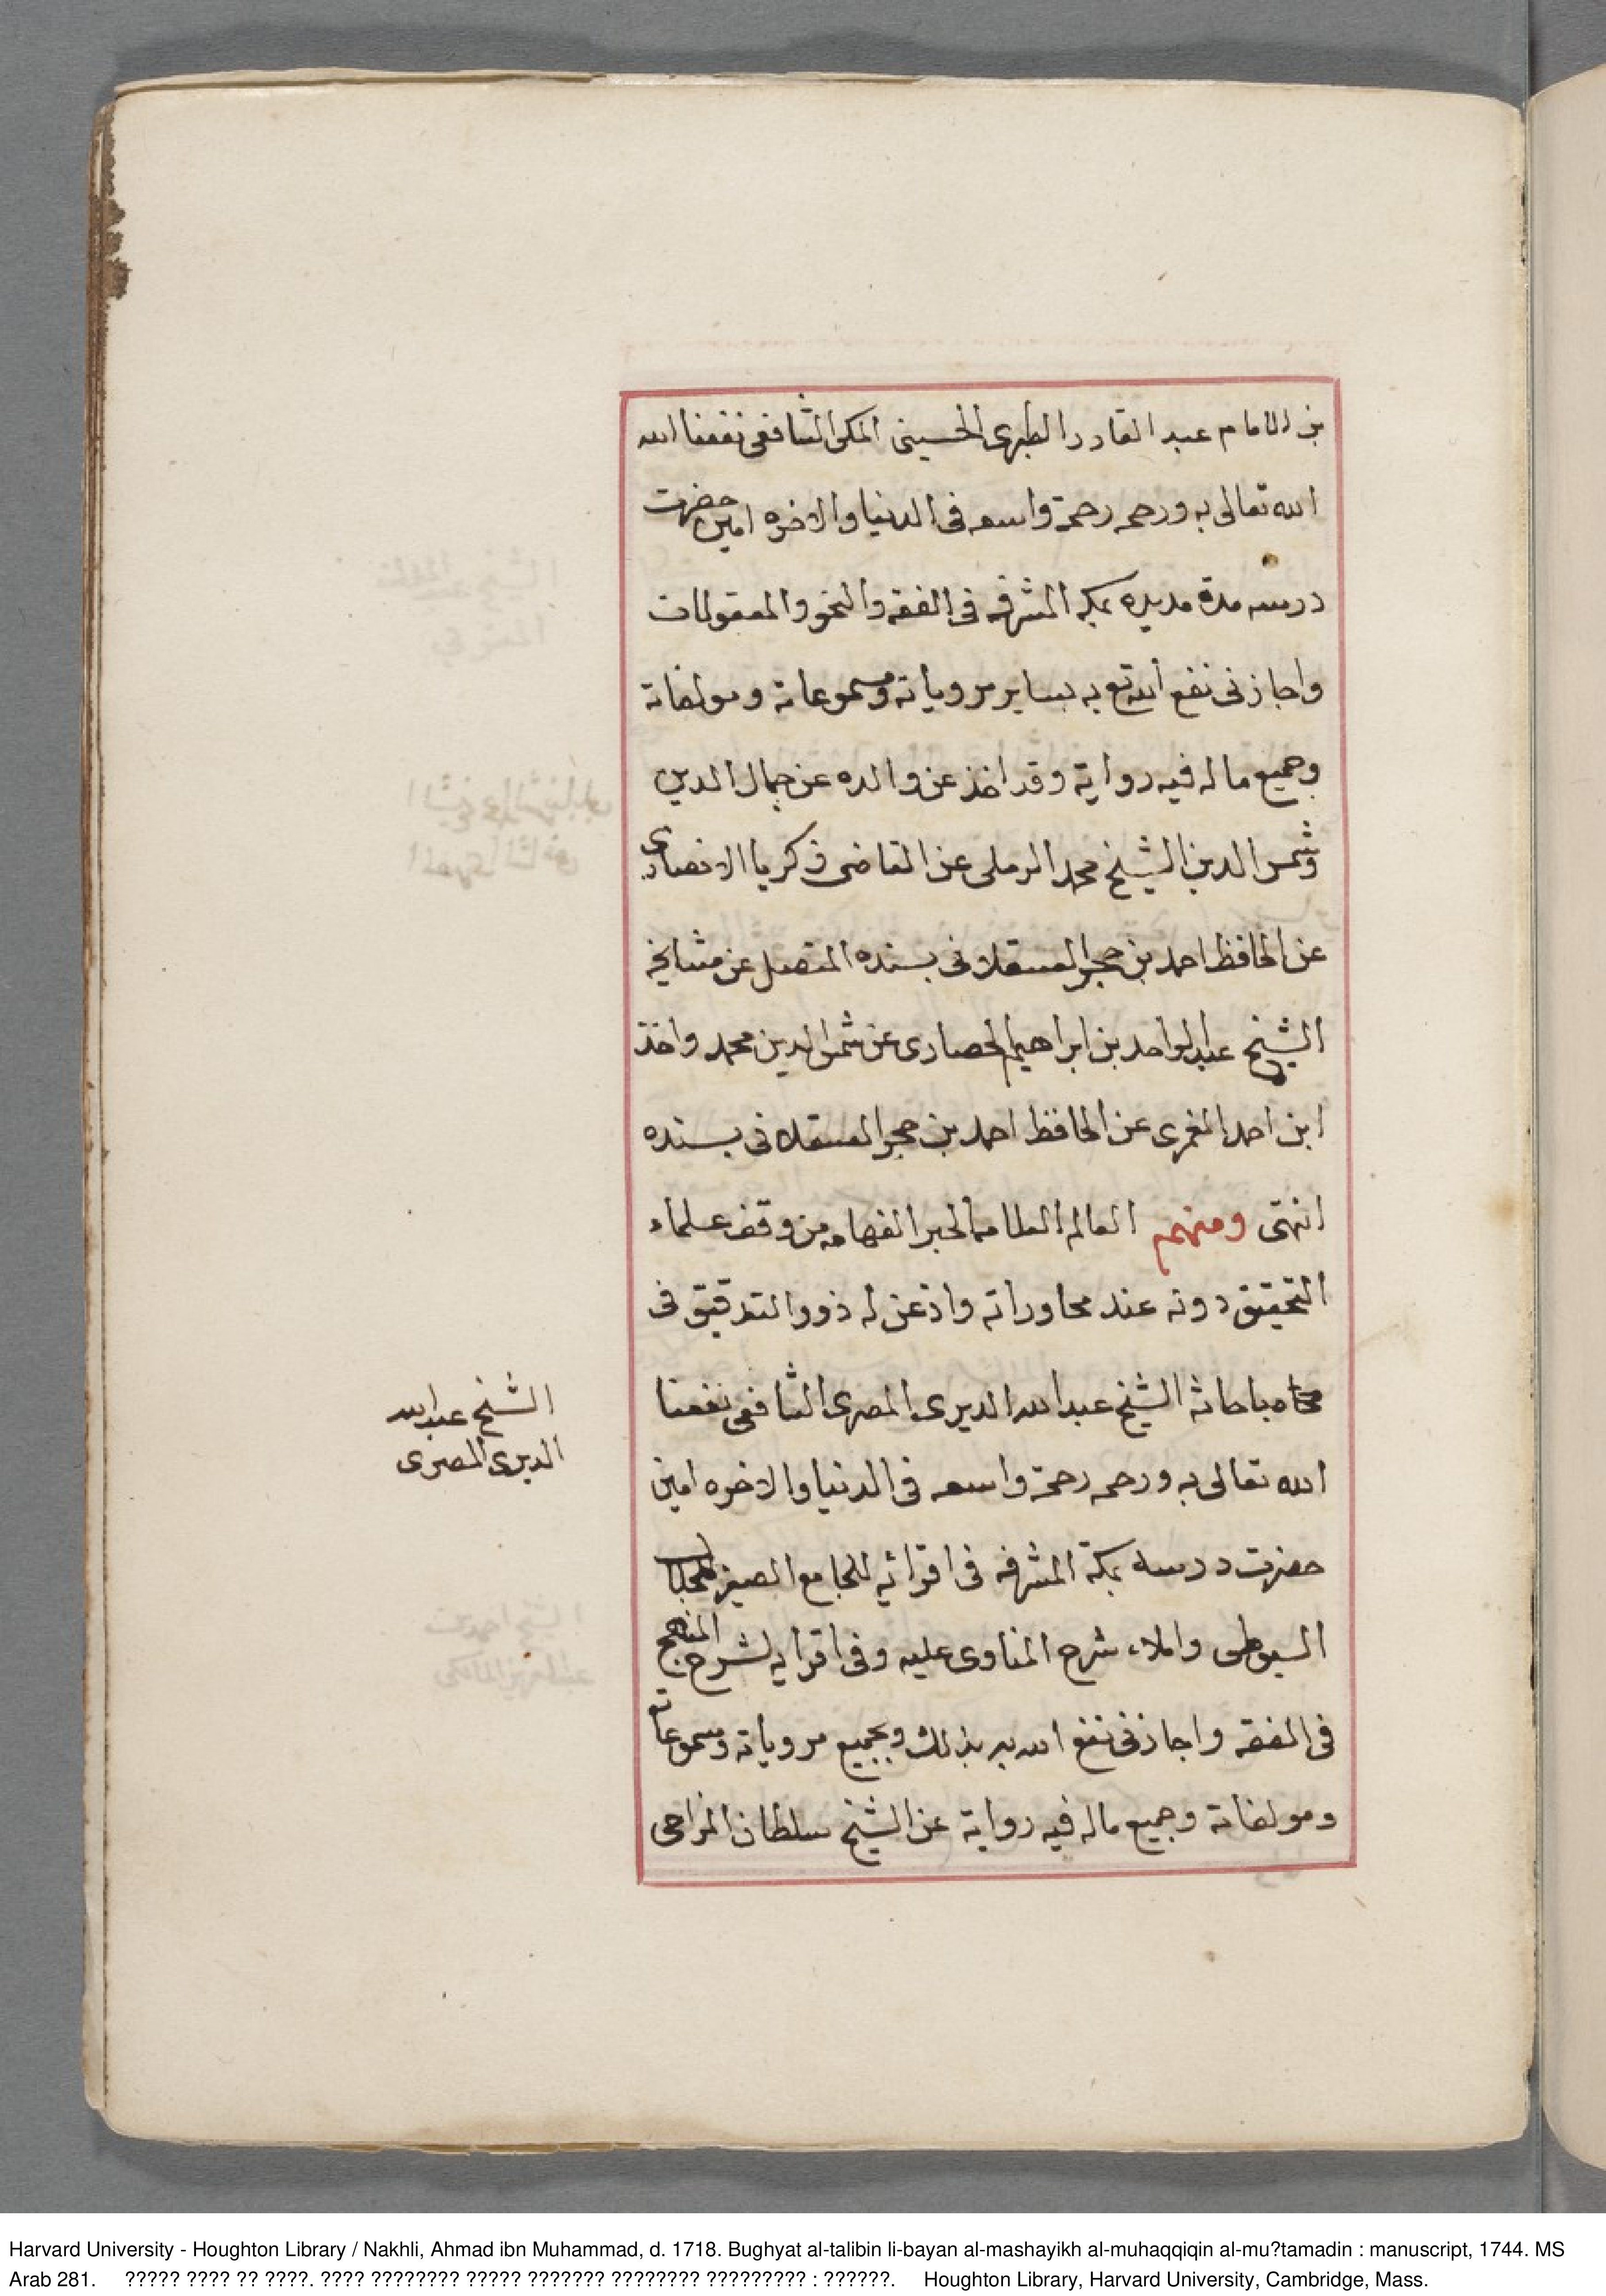 بن الامام عبد القادر الطبرى الحسينى المكى الشافعى نفعنا الله
الله تعالى به ورحمه رحمة واسعه فى الدنيا والاخره امين حضرت
درسه مدة مديده بمكه المشرفه فى الفقه والنحو والمعقولات
واجازنى نفع الله تع به بساير مروياته ومسموعاته ومولفاته
وجميع ماله فيه رواية وقد اخذ عن والده عن جمال الدين
وشمس الدين الشيخ محمد الرملى عن القاضى زكريا الانصارى
عن الحافظ احمد بن حجر العسقلانى بسنده المتصل عن مشايخه
الشيخ عبد الواحد بن ابراهيم الحصارى عن شمس الدين محمد واخذ
ابن احمد الغمرى عن الحافظ احمد بن حجر العسقلانى بسنده
انتهى ومنهم العالم العلامه الحبر الفهامه من وقف علماء
التحقيق دونه عند محاوراته واذعن له ذوو التدقيق فى
مباحاثه الشيخ عبد الله الديرى المصرى الشافعى نفعنا
الله تعالى به ورحمه رحمة واسعه فى الدنيا والاخره امين
حضرت درسه بمكة المشرفه فى اقرائه للجامع الصغير للجلال
السيوطى واملاء شرح المناوى عليه وفى اقرايه لشرح المنهج
فى الفقه واجازنى نفع الله به بذلك وبجميع مروياته ومسموعاته
ومولفاته وجميع ماله فيه رواية عن الشيخ سلطان المزاحى
الشيخ عبد الله
الديرى المصرى
Harvard University - Houghton Library / Nakhli, Ahmad ibn Muhammad, d. 1718. Bughyat al-talibin li-bayan al-mashayikh al-muhaqqiqin al-mu?tamadin : manuscript, 1744. MS
Arab 281. ????? ???? ?? ????. ???? ???????? ????? ??????? ???????? ????????? : ??????. Houghton Library, Harvard University, Cambridge, Mass.